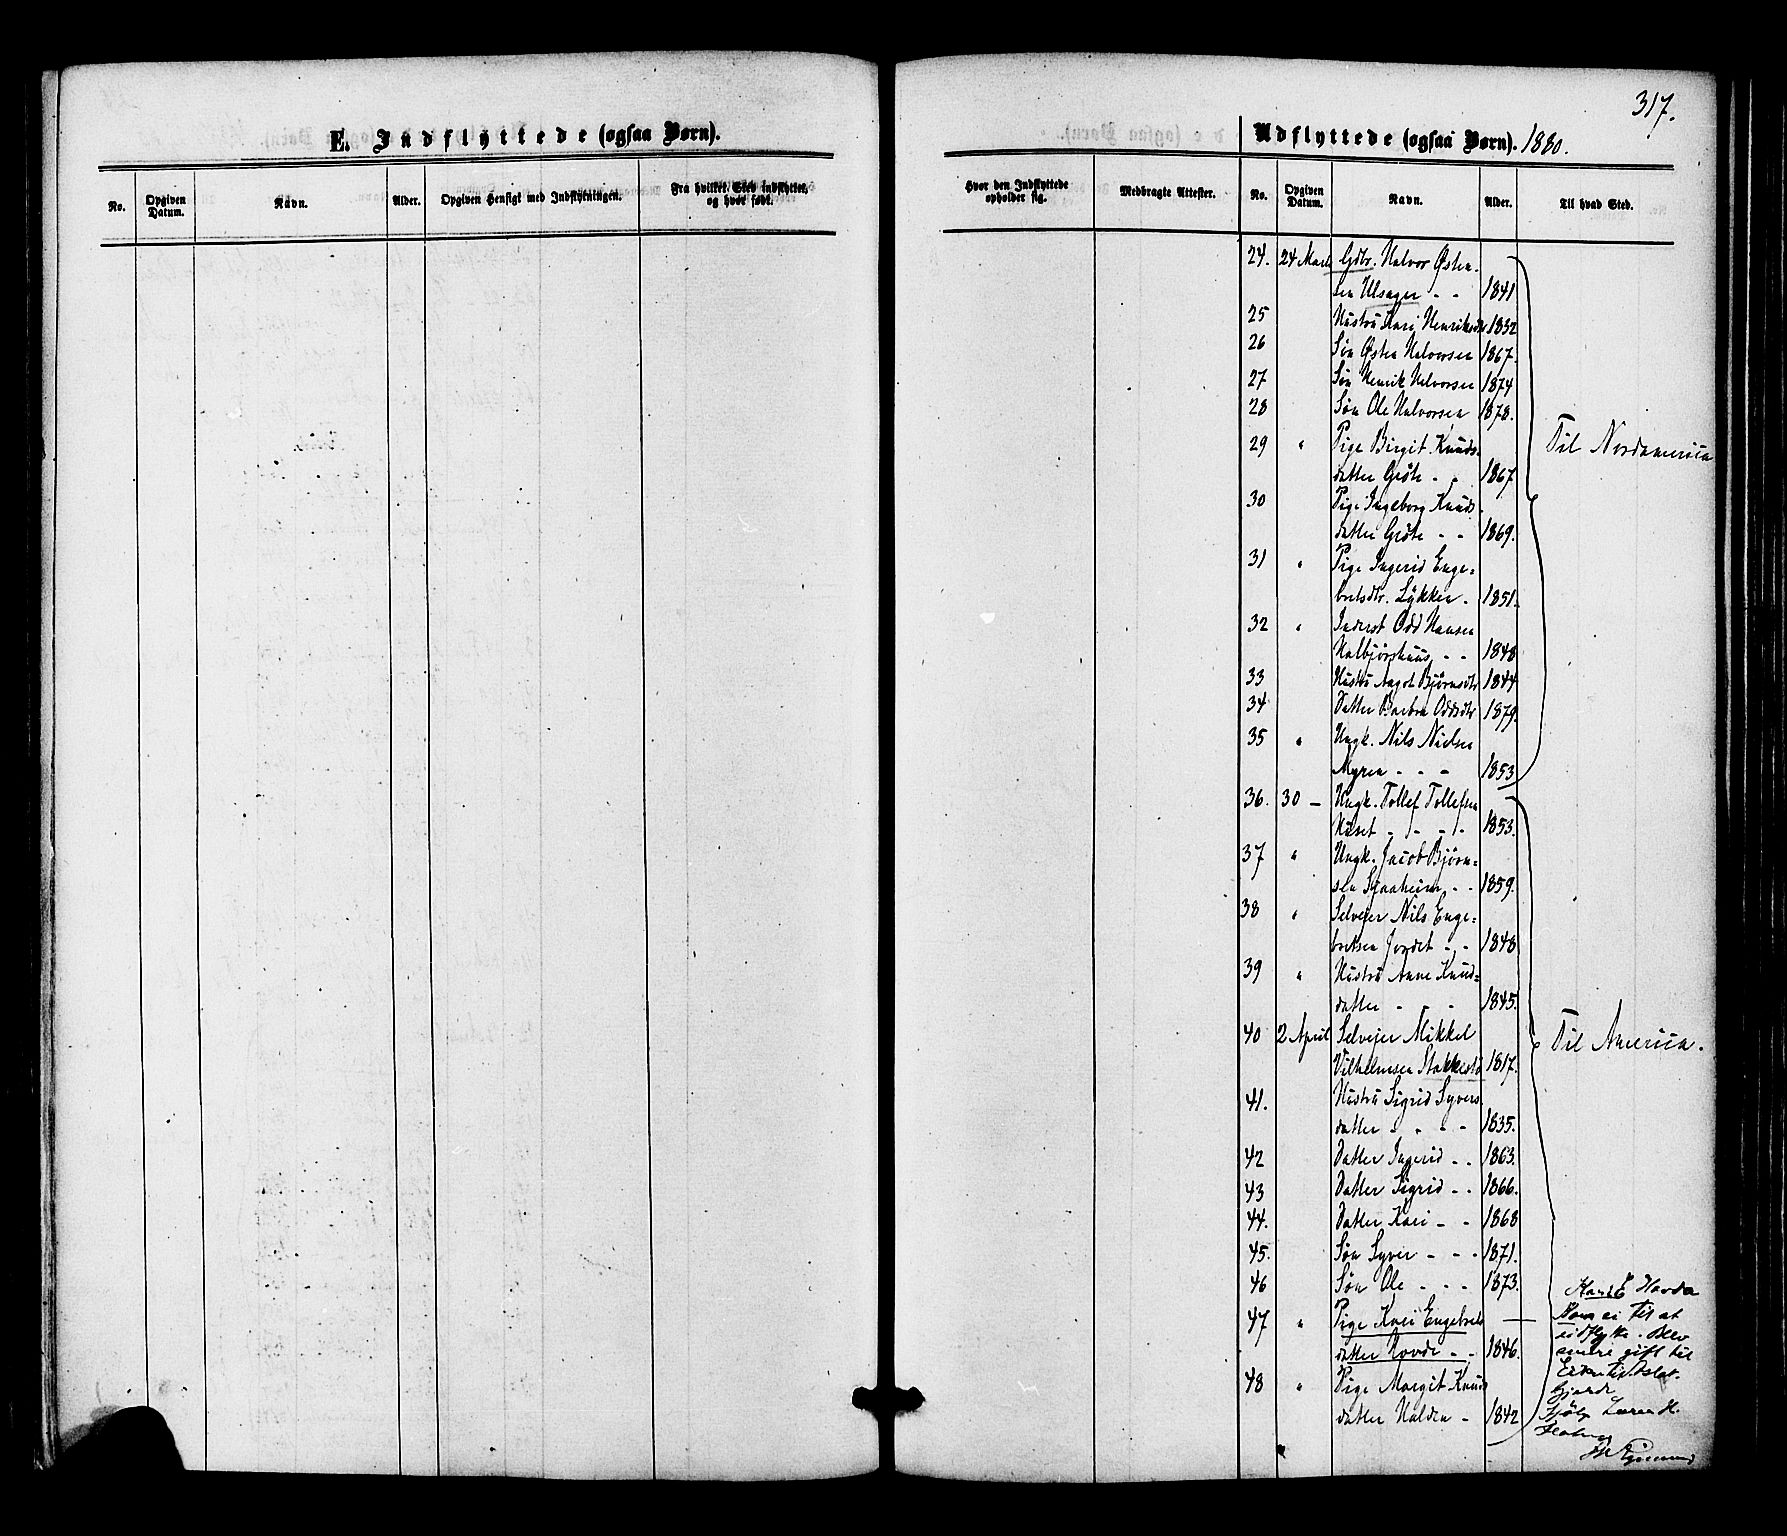 317.
E. Indflyttede (ogsaa Børn).
No. Opgiven Datum. Navn. Alder. Opgiven Hensigt med Indflytningen. Fra hvilket Sted indflyttet, og hvor født.
Udflyttede (ogsaa Børn). 1880.
Hvor den Indflyttede opholder sig. Medbragte Attester. No. Opgiven Datum. Navn. Alder. Til hvad Sted.
24. 24 Marts Gdbr. Halvor Østen-
sen Ulsager - - 1841
25 Hustru Kari Henriksdtr 1832
26 Søn Østen Halvorsen 1867.
27 Søn Henrik Halvorsen 1874
28 Søn Ole Halvorsen 1878.
29 " Pige Birgit Knuds-
datter Grøte - - 1867
Til Nordamerica
30 Pige Ingeborg Knuds-
datter Grøte - - 1869.
31 " Pige Ingerid Enge=
bretsdtr. Løkken - 1851.
32 " Inderst Odd Hansen
Halbjørshuus - - 1848
33 Hustru Aagot Bjørnsdtr 1844
34 Datter Barbra Oddsdtr 1879.
35 " Ungk. Nils Nielsen
Myren - - - 1853
36. 30 - Ungk. Tollef Tollefsen
Huset - - - - 1853.
37 " Ungk. Jacob Bjørn=
sen Sjaaheim - - 1859.
38 " Selveier Nils Enge=
bretsen Jordet - - 1848
39 " Hustru Anne Knud=
datter - - - 1845.
40 2 April Selveier Mikkel
Vilhelmsen Stakkestø 1817.
Til America.
41. Hustru Sigrid Syvers
datter - - - - 1835.
42 Datter Ingerid - - 1863.
43 Datter Sigrid - - 1866.
44. Datter Kari - - 1868
45. Søn Syver - - - 1871.
46 Søn Ole - - - 1873.
47 " Pige Kari Engebrets
datter Hovde - - 1846.
48 " Pige Margit Knuds
datter Halden - 1842
Kari E Hovda
Kom ei til at
udflytte. Blev
senere gift til